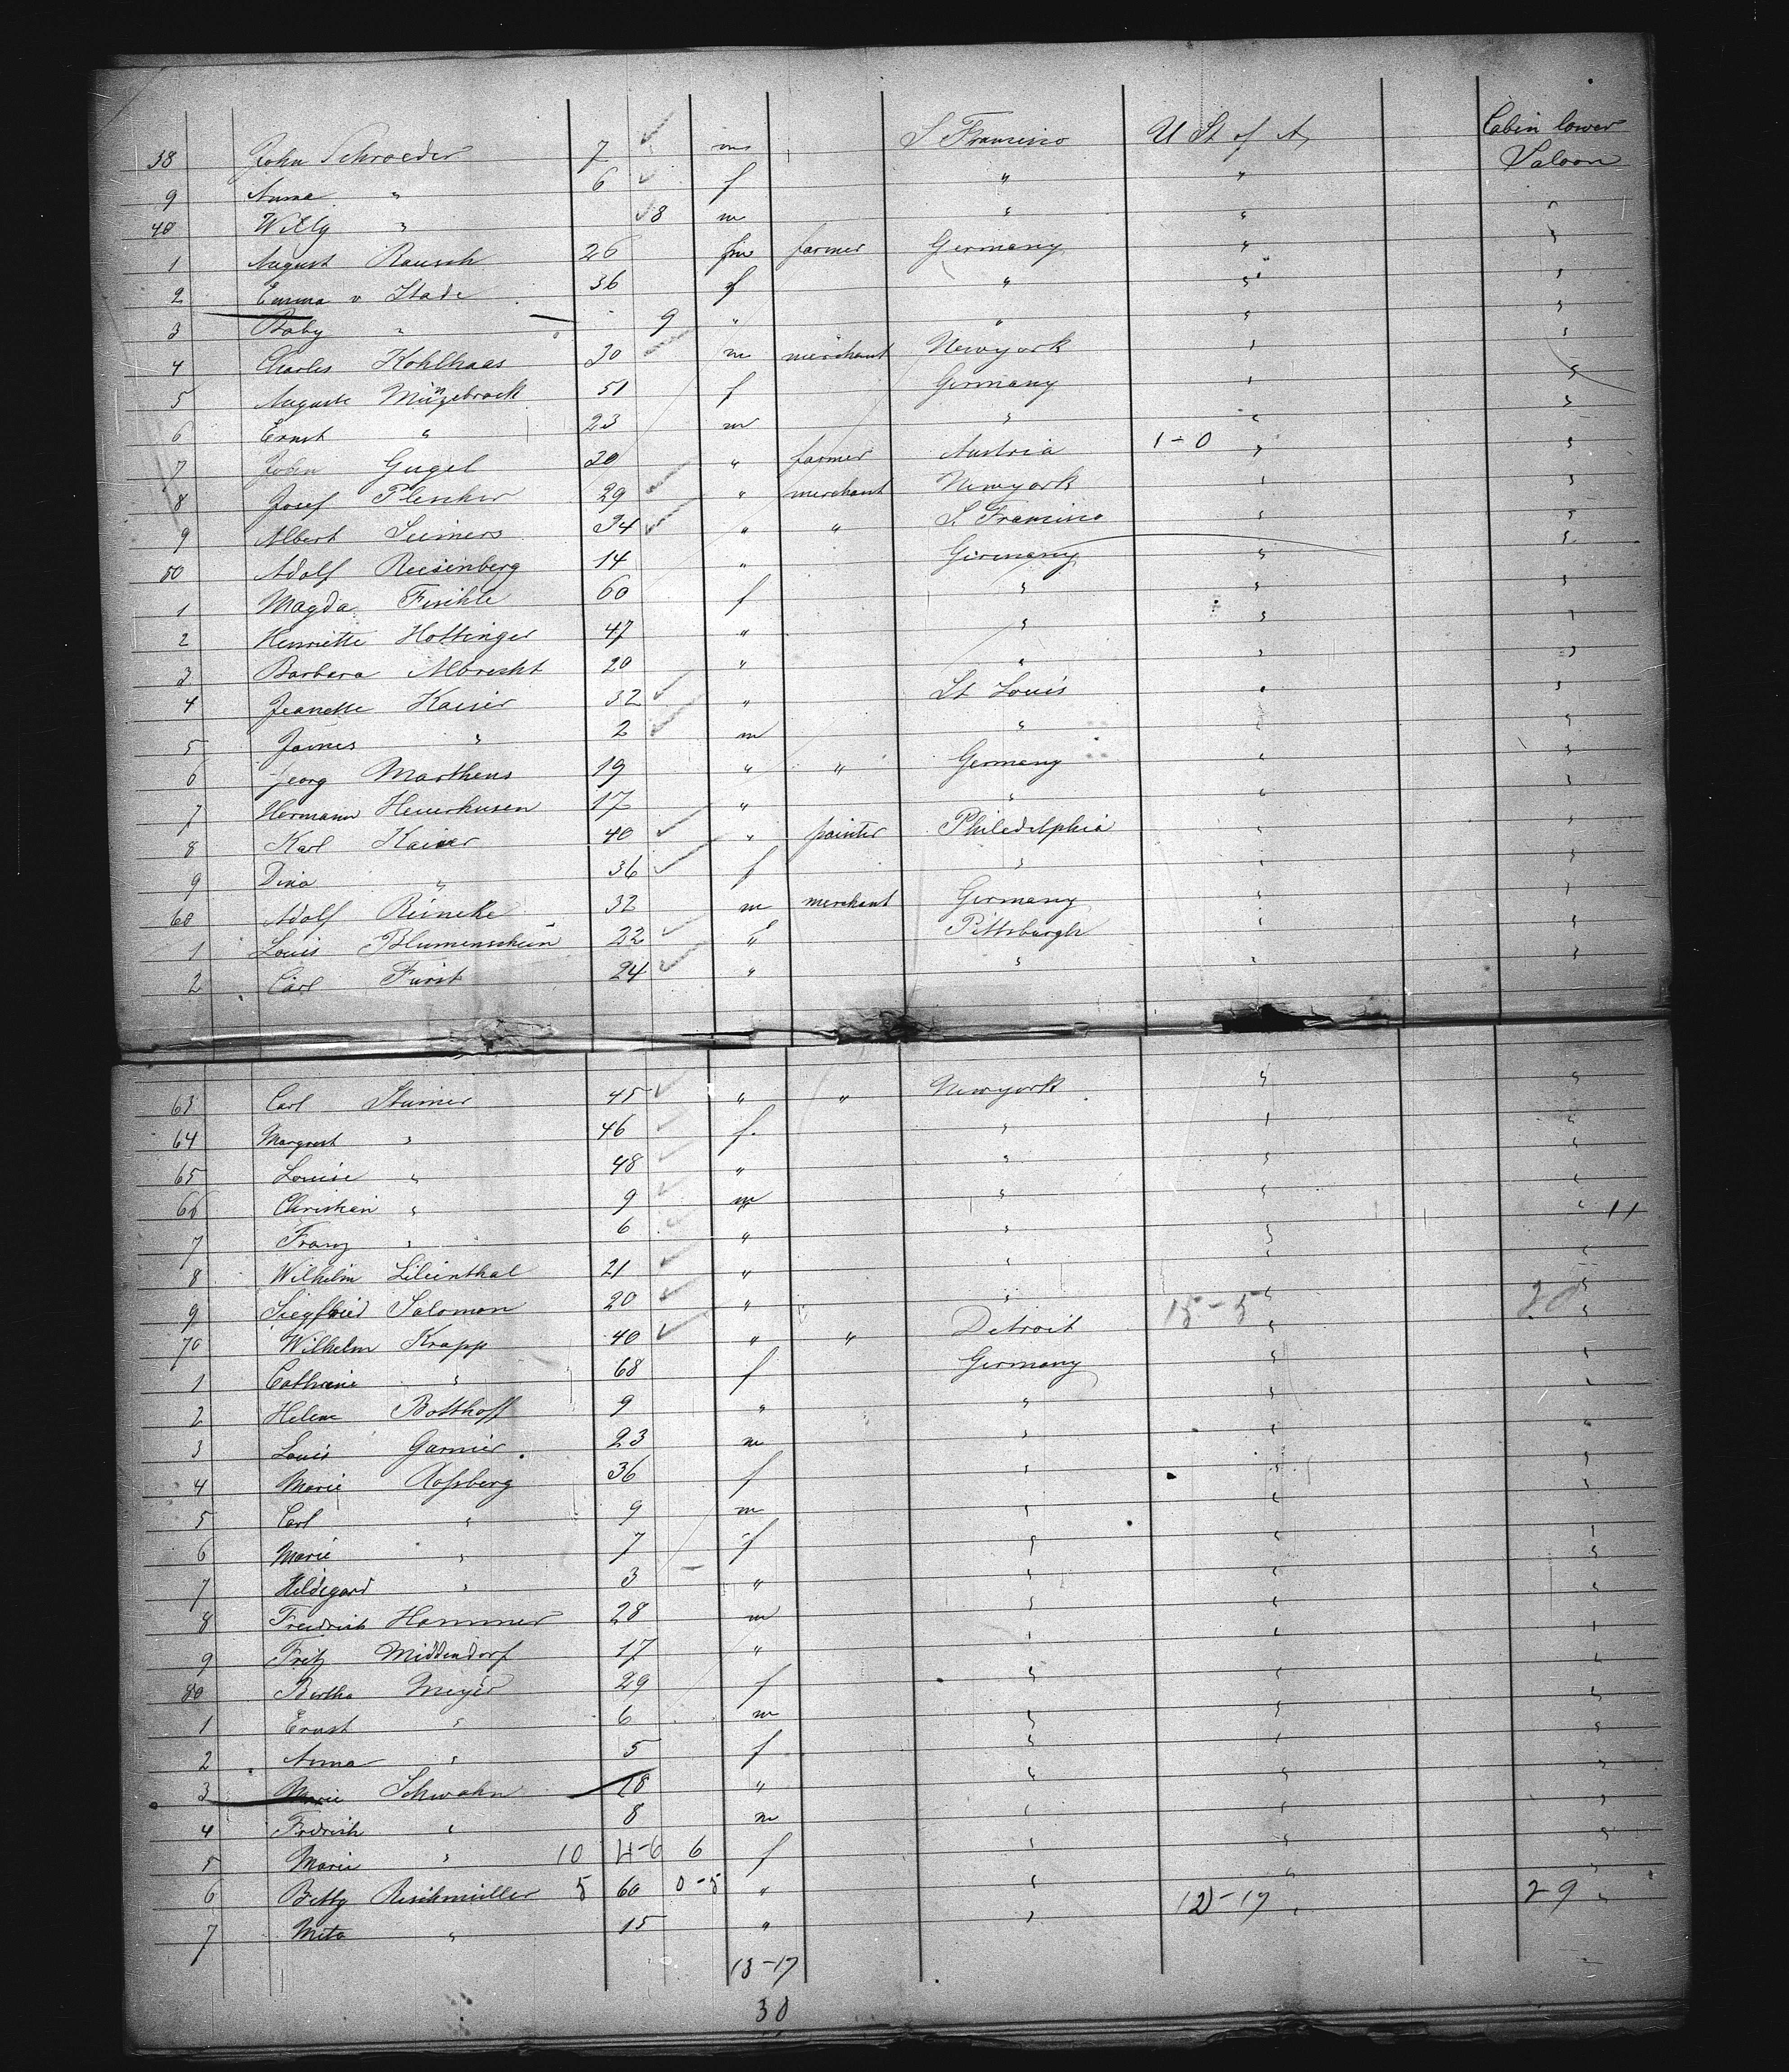 38 John Schroeder 7 m S Francisco U St of A, Cabin lower Saloon
9 Anna " 6 f " "
40 Willy " 8 m " " "
1 August Rausch 26 m farmer Germany " "
2 Emma v Stade 36 f " " "
3 Baby " 9 " " " "
4 Charles Kohlhaas 30 m merchant Newyork " "
5 Auguste Münzebrock 51 f Germany " "
6 Ernst " 23 m " " "
7 John Gugel 20 " farmer Austria 1-0 " "
8 Josef Plescher 29 " merchant Newyork " "
9 Albert Seimers 34 " " S. Francisco " "
50 Adolf Reisenberg 14 " Germany " "
1 Magda 60 f " " "
2 Henriette Hottinger 47 " " " "
3 Barbara Albrecht 20 " " " "
4 Jeanette Kaiser 32 " St Louis " "
5 James " 2 m " " "
6 Georg Marthens 19 " " Germany " "
7 Hermann Heuerhusen 17 " " " "
8 Karl Kaiser 40 " painter Philadelphia " "
9 Dina " 36 f " " "
60 Adolf Reineke 32 m merchant Germany " "
1 Louis Blumenschein 22 " Pittsburgh " "
2 Carl Furst 24 " " " "
63 Carl Stumer 45 " " Newyork " "
64 Margret " 46 f " " "
65 Louise " 48 " " " "
66 Christian " 9 m " " " 11
7 Franz " 6 " " "
8 Wilhelm Lilienthal 21 " " " "
9 Siegfried Salomon 20 " " 15-5 " 20 "
70 Wilhelm Krapp 40 " " Detroit " "
1 Cathrine " 68 f Germany " "
2 Helene Botthoff 9 " " " "
3 Louis Garnier 23 m " " "
4 Marie Rossberg 36 f " " "
5 Carl " 9 m " " "
6 Marie " 7 f " " "
7 Hildegard " 3 " " " "
8 Freidrich Hammer 28 m " " "
9 Fritz Middendorf 17 " " " "
80 Bertha Meyer 29 f " " "
1 Ernst " 6 m " " "
2 Anna " 5 f " " "
3 Marie Schwahn 28 " " " "
4 Fridrich " 8 m " " "
5 Marie " 10 4-6 6 f " " "
6 Betty Rischmüller 5 60 0-5 " " " "
7 Meta " 15 " " 12-17 " 29 "
13-17
30